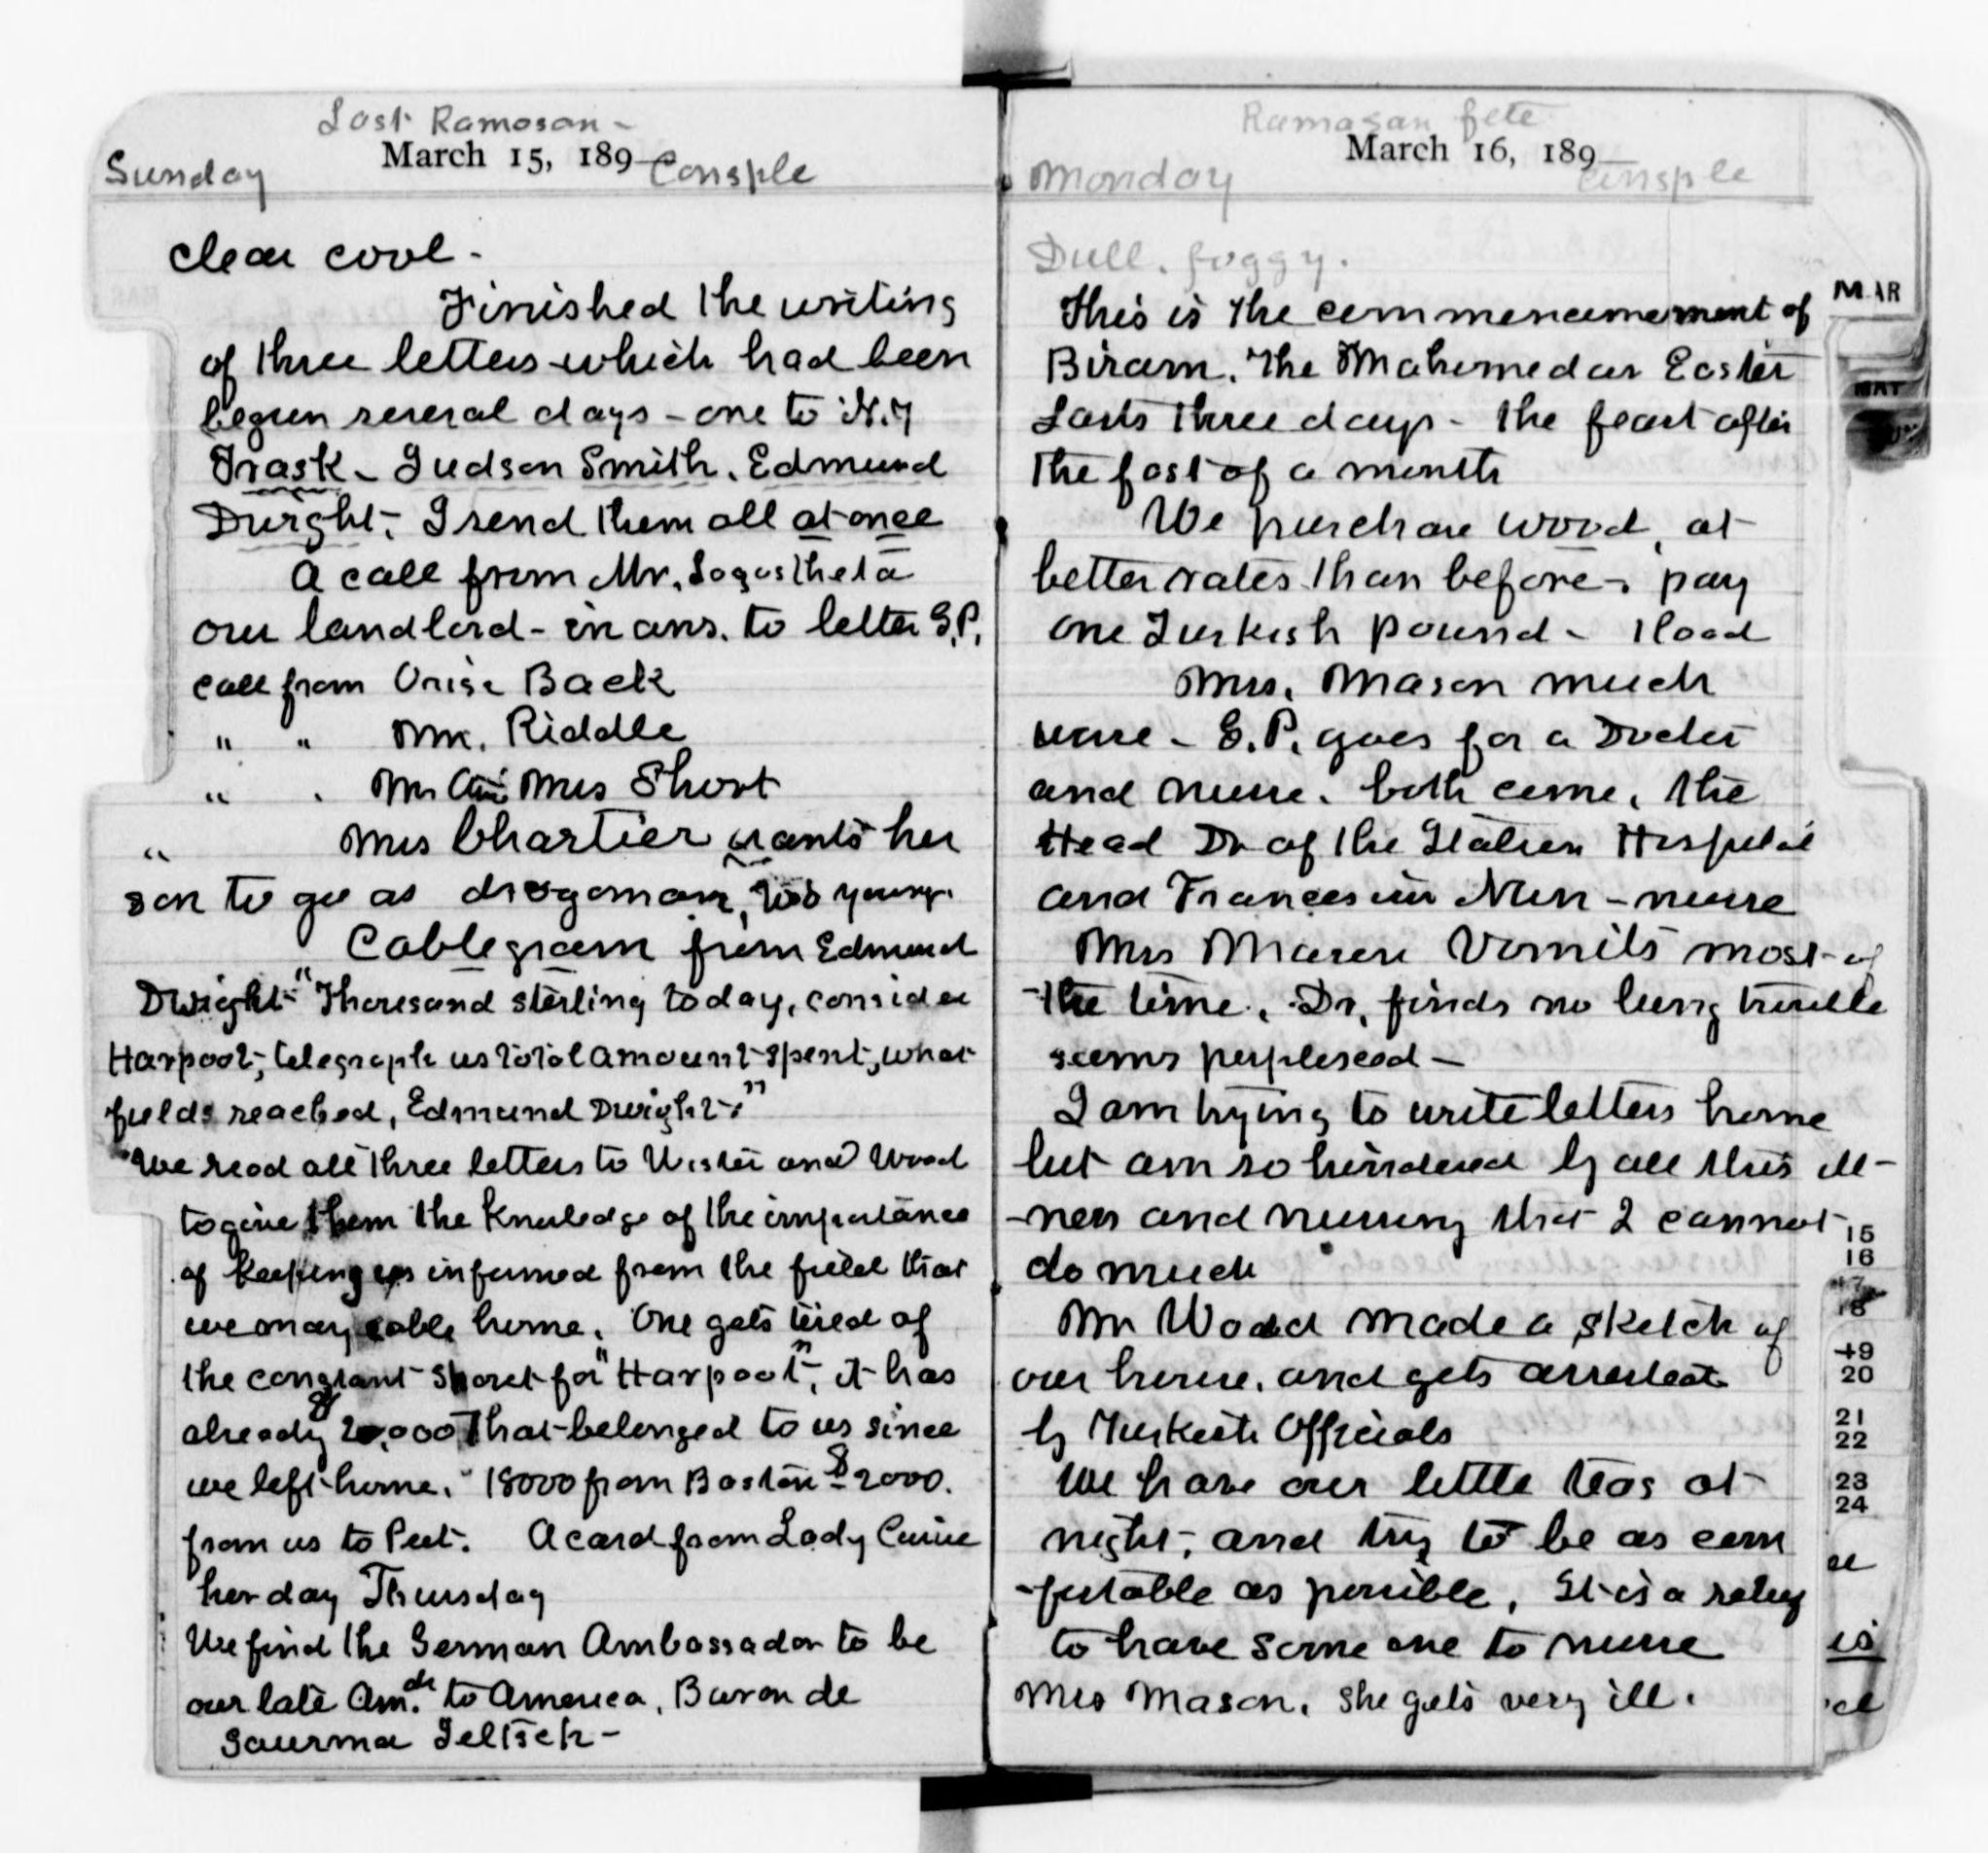 Last Ramosan -
March 15, 189
Sunday
Consple
clear cool -
Finished the writing
of three letters which had been
begun several days - one to N.Y
Trask - Judson Smith. Edmund
Dwight. I send them all at once
A call from Mr. Logotheta
our landlord - in ans. to letter G.P.
call from Miss Back
" " Mr. Riddle
" " Mr and Mrs Short
" Mrs Chartier wants her
son to go as drogoman, too young.
Cablegram from Edmund
Dwight - "Thousand sterling today, consider
Harpoot, telegraph us total amount spent, what
fields reached, Edmund Dwight."
We read all three letters to Wistar and Wood
to give them the knowledge of the importance
of keeping us informed from the field that
we may cable home. One gets tired of
the constant shout for "Harpoot", it has
already $20,000 that belonged to us since
we left home. 18000 from Boston - $2000.
from us to Peet. A card from Lady Currie
her day Thursday
We find the German Ambassador to be
our late Am.dr to America, Baron de
Saurma Jeltsch -
Ramasan fete
March 16, 189
Monday
Consple
Dull. foggy.
This is the commencement of
Biram. The Mahomedan Easter
Lasts three days - the feast after
the fast of a month
We purchase wood, at
better rates than before. pay
one Turkish pound - load
Mrs. Mason much
worse - G.P. goes for a Doctor
and nurse. both come, the
Head Dr of the Italien Hospital
and Franciscan Nun - nurse
Mrs Mason vomits most of
the time. Dr. finds no lung trouble
seems perplexed -
I am trying to write letters home
but am so hindered by all this ill-
-ness and nursing that I cannot
do much
Mr Wood made a sketch of
our house, and gets arrested
by Turkish Officials
We have our little teas at
night, and try to be as com
-fortable as possible. It is a relief
to have some one to nurse
Mrs Mason. She gets very ill.
MAR
MAY
15
16
17
18
19
20
21
22
23
24
is